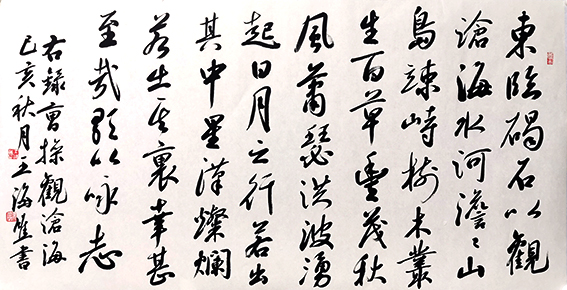 東臨碣石以觀
滄海水河澹〻山
島竦峙樹木叢
生百草豐茂秋
風蕭瑟洪波湧
起日月之行若出
其中星漢燦爛
若出其裏幸甚
至哉歌以咏志
右錄曹操觀滄海
己亥秋月王海書